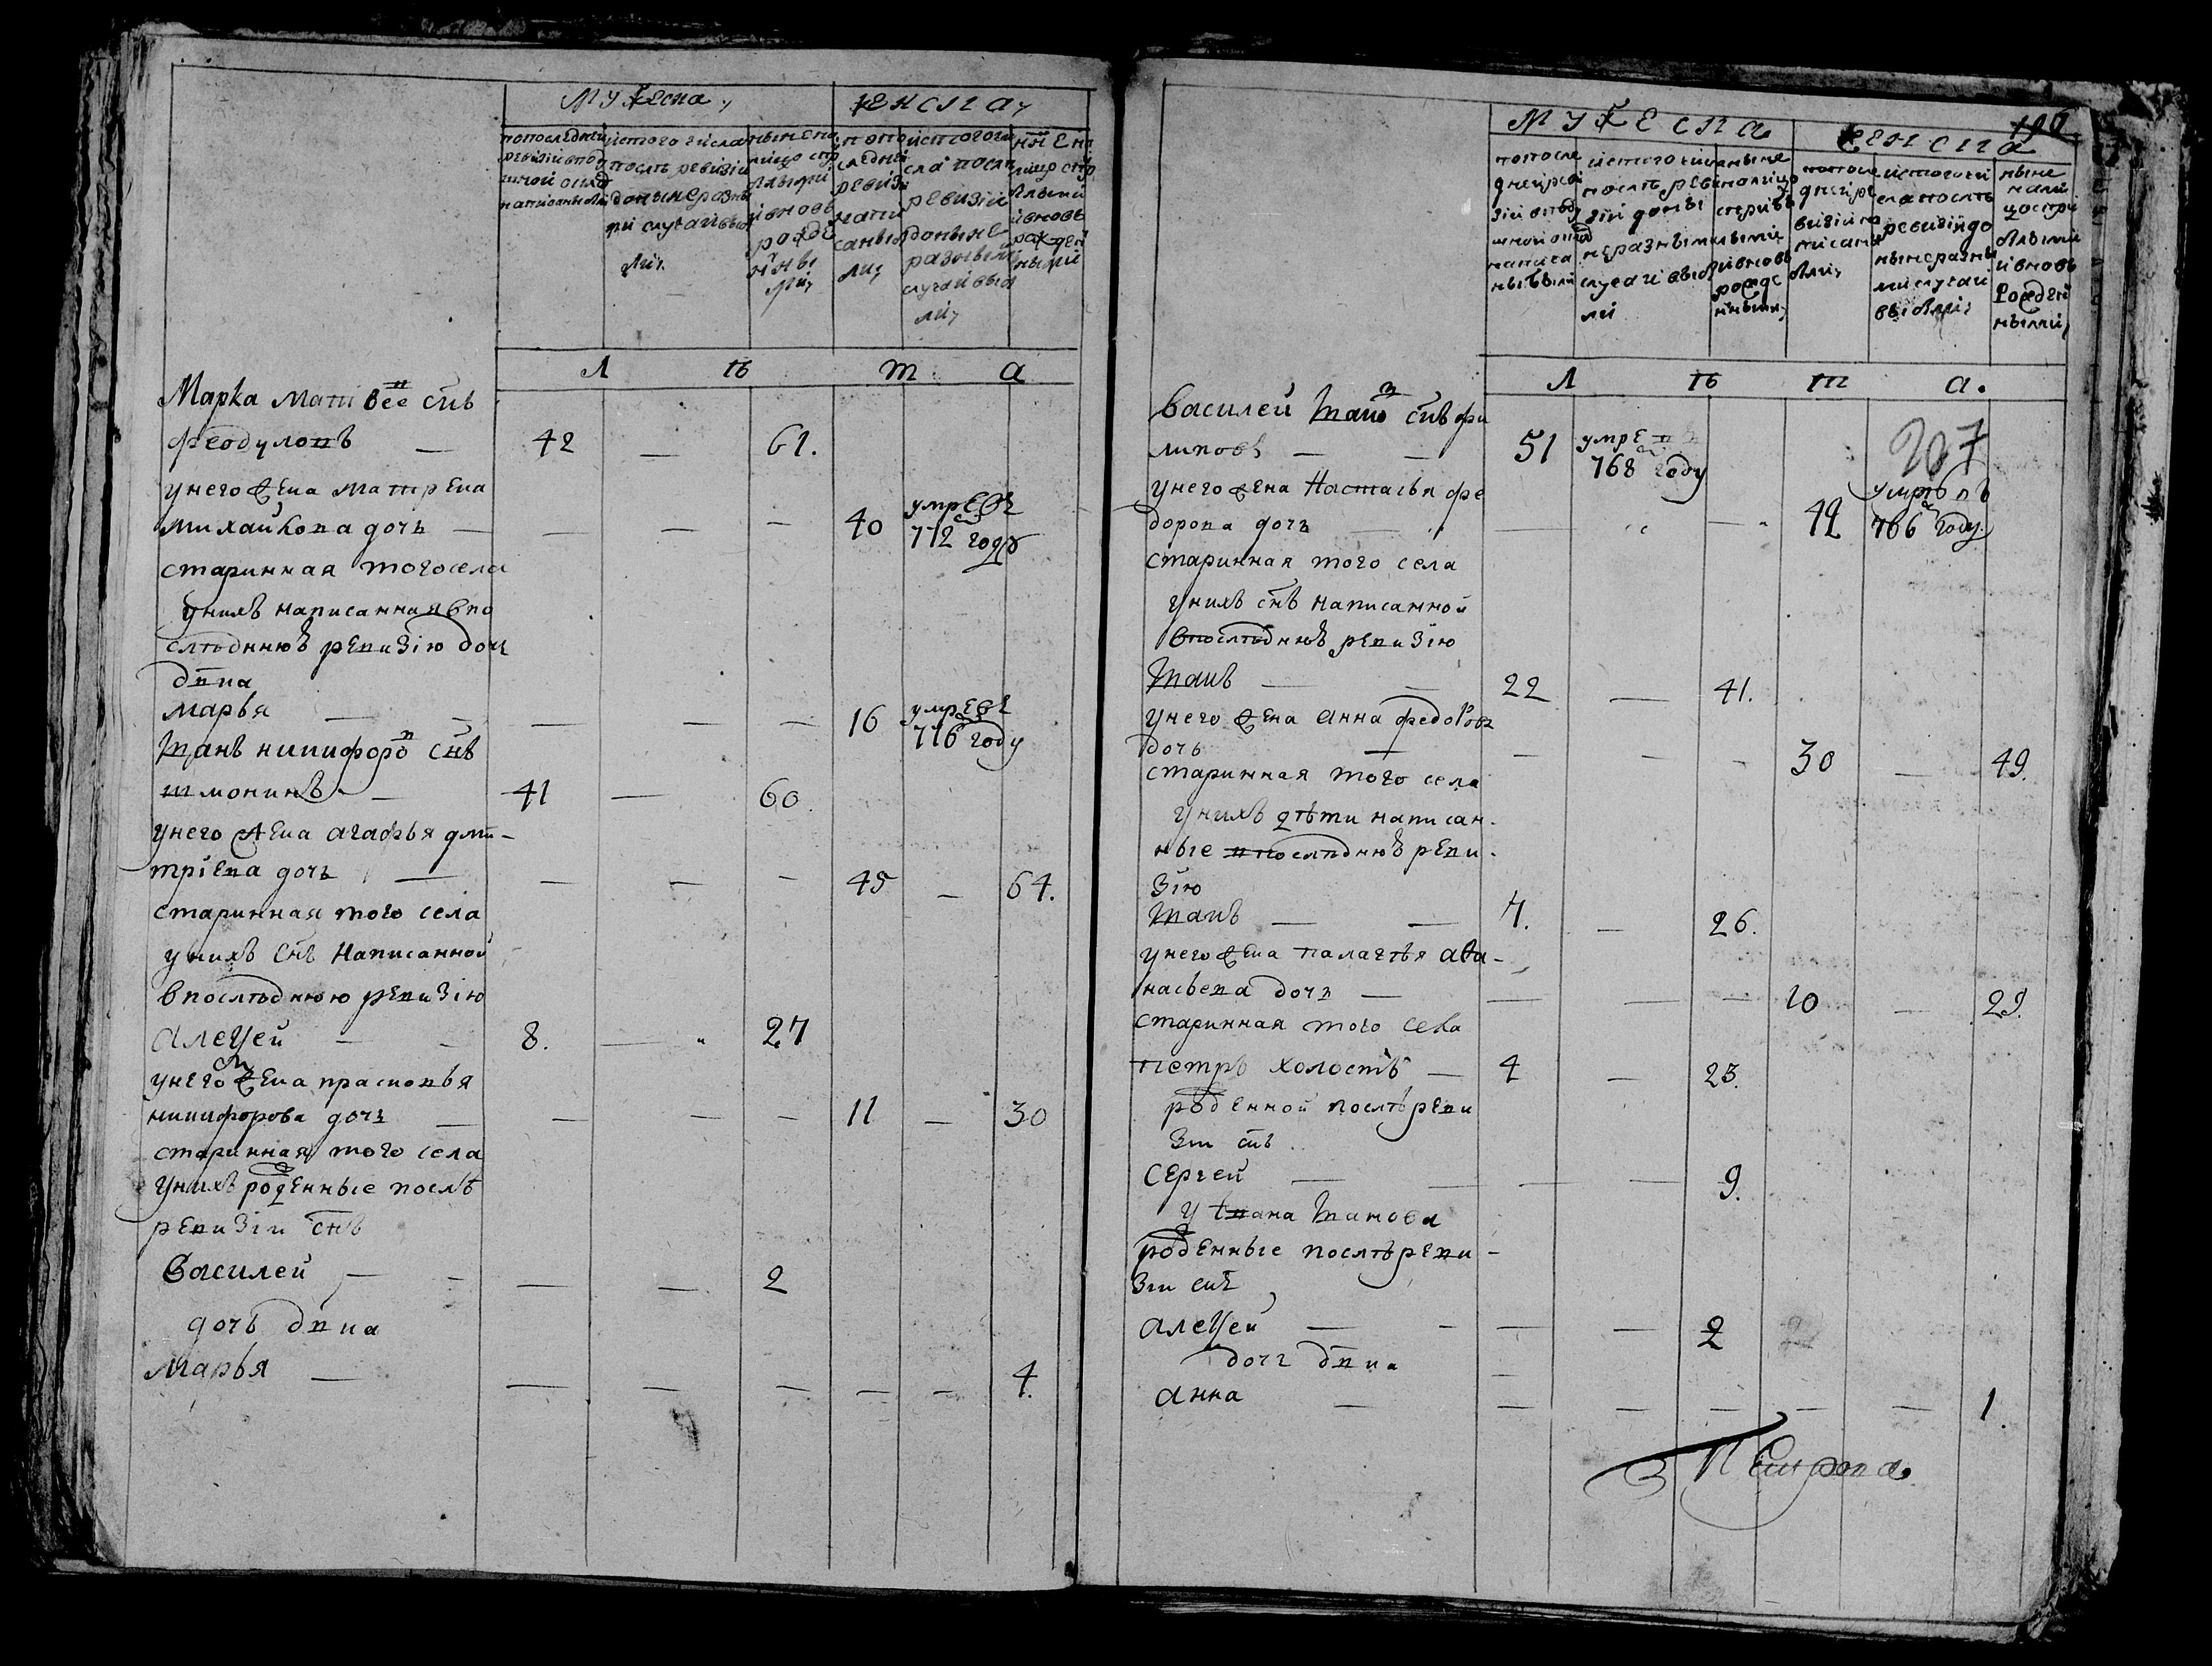 мужеска,
женска,
по последней
ревизии в под
ушной оклад
написаны были
ис того числа
после ревизии
до ныне разны
ми случаи выбы
ли,
ныне на
лицо
и вновь
рожде
нны
ми,
по по
следней
ревизи
напи
саны бы
ли,
ис того чи
сла после
ревизии
до ныне
разными
случаи выбы
ли,
ныне на
лицо
и вновь
рожден
ными
л ѣ т а
Марка Матвеев снъ
феодуловъ — 42 — 61.
у него жена Матрена
Михайлова дочь — — — — 40 умре въ
772 году
старинная того села
у нихъ написанная в по
слѣднюю ревизию дочь
двка
Марья — — — — 16 умре въ
776 году
Иванъ Никифоров снъ
— 41 — 60.
у него жена Агафья Дми-
триева дочь — — — — 45 — 64.
старинная того села
у нихъ снъ написанной
в послѣднюю ревизию
Алеѯей — 8. — 27
у него жена Прасковья
Никифорова дочь — — — — 11 — 30
старинная того села
у нихъ роденные послѣ
ревизии снъ
Василей — — — 2
дочь двка
Марья — — — — — — 4.
190
мужеска
женска
по после
дней реви
зии в поду
шной оклад
написа
ны были
ис того числа
после реви
зии до ны
не разными
случаи выбы
ли
ныне
на лицо
и вновь
рожде
нными,
по после
дней ре
визии на
писаны
были,
ис того чи
сла после
ревизии до
ныне разны
ми случаи
выбыли,
ныне
нали
цо
и вновь
рожден
ными,
л ѣ т а.
207
Василей Иванов снъ Фи
липовъ — — 51 умре въ
768 году
у него жена Настасья Фе
дорова дочь — — — — 42 умре въ
766 году
старинная того села
у нихъ снъ написанной
в послѣднюю ревизию
Иванъ — — 22 — 41.
у него жена Анна Федорова
дочь — — — — 30 — 49.
старинная того села
у нихъ дѣти написан-
ные в послѣднюю реви-
зию
Иванъ — — 7. — 26.
у него жена Палагѣя Афа-
насьева дочь — — — — 10 — 29.
старинная того села
Петръ холостъ — 4 — 23.
роденной послѣ реви
зии снъ
Сергей — — — — 9.
у Ивана Иванова
роденные послѣ реви-
зии снъ
Алеѯей — — — — 2
дочь двка
Анна — — — — — — 1.